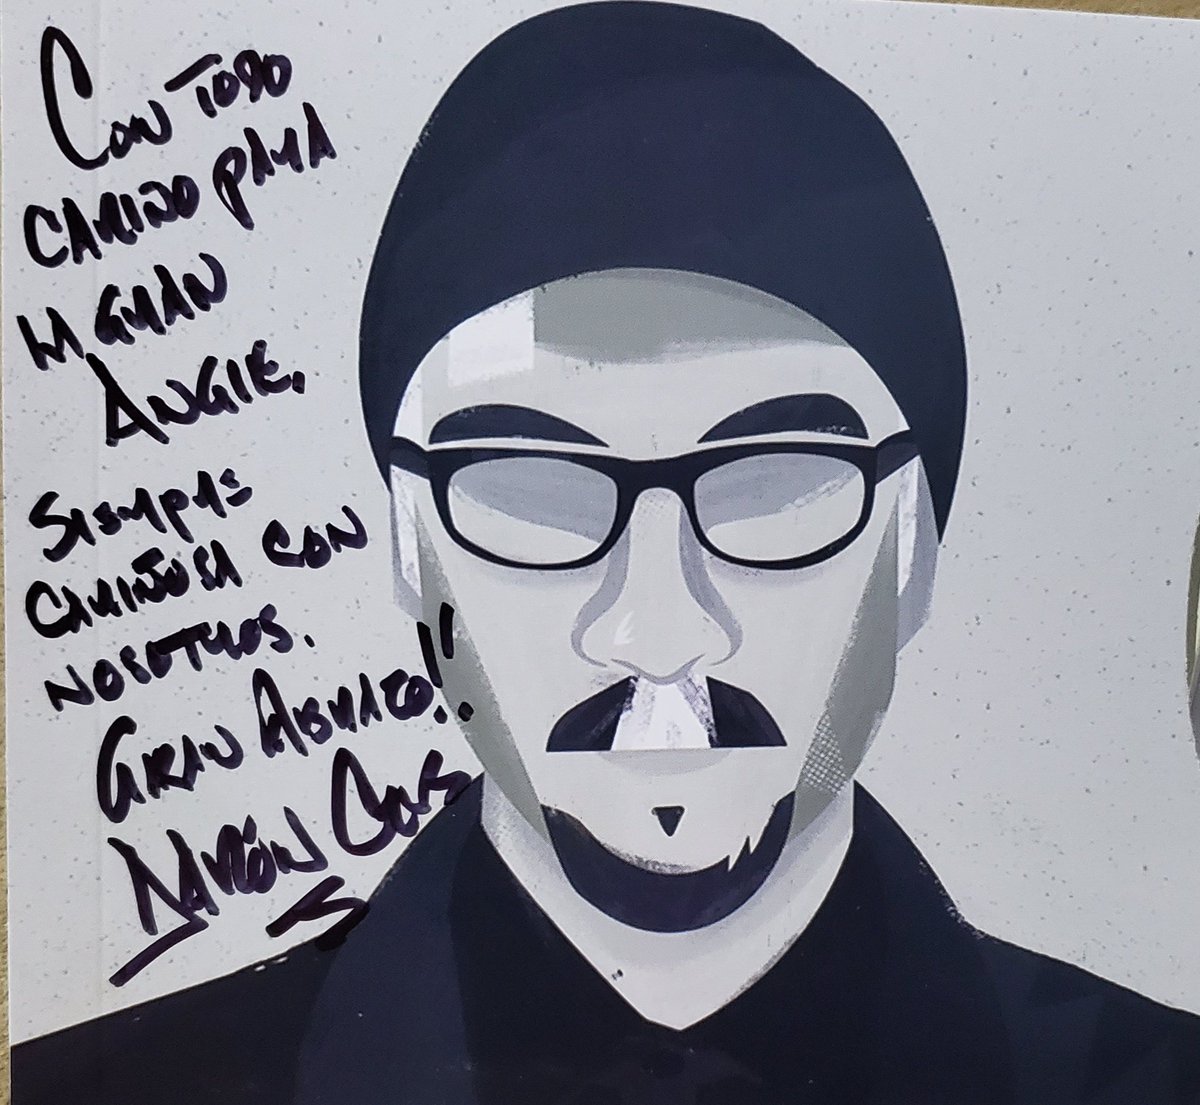 Con Todo
cariño para
la gran
Angie.
Siempre
cariñosa con
nosotros.
Gran Abrazo!!